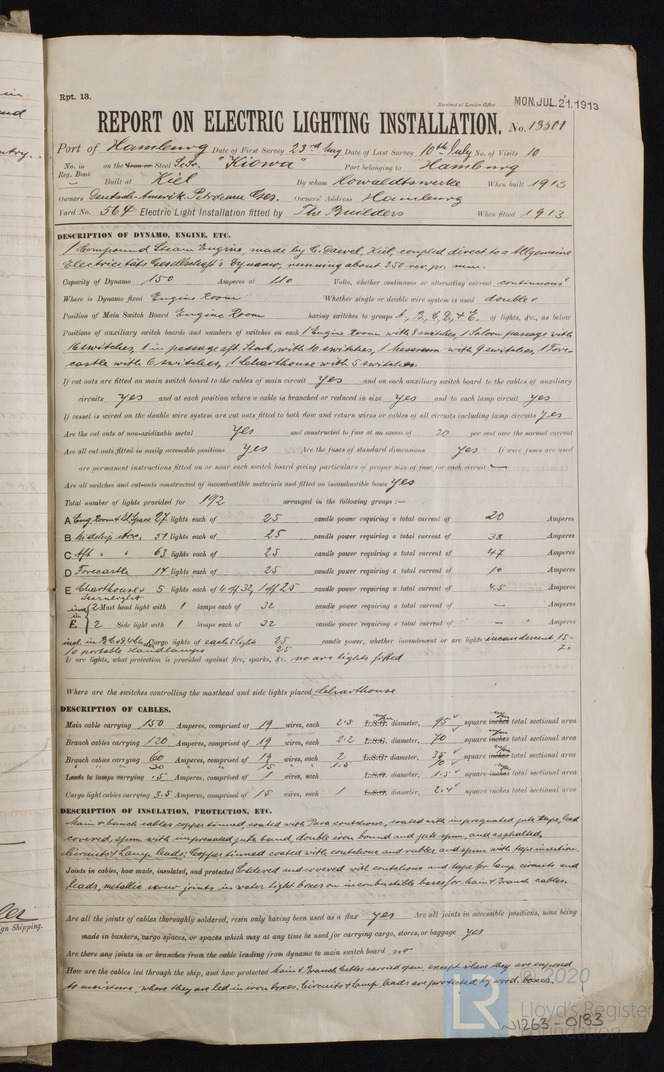 Rpt. 13.
Received at London Office MON. JUL. 21. 1913
REPORT ON ELECTRIC LIGHTING INSTALLATION. No. 13501
Port of Hamburg Date of First Survey 23rd May Date of Last Survey 10th July No. of Visits 10
No. in Reg. Book on the Iron or Steel S.S. "Kiowa" Port belonging to Hamburg
Built at Kiel By whom Howaldtswerke When built 1913
Owners Deutsch-Amerik. Petroleum Ges. Owners' Address Hamburg
Yard No. 564 Electric Light Installation fitted by The Builders When fitted 1913
DESCRIPTION OF DYNAMO, ENGINE, ETC.
1 Compound Steam Engine, made by C. Daevel, Kiel, coupled direct to a Allgemeine
Electricitäts Gesellschaft's Dynamo, running about 250 rev. pr. min.
Capacity of Dynamo 150 Amperes at 110 Volts, whether continuous or alternating current continuous
Where is Dynamo fixed Engine Room Whether single or double wire system is used double
Position of Main Switch Board Engine Room having switches to groups A, B, C, D, & E. of lights, &c., as below
Positions of auxiliary switch boards and numbers of switches on each 1 Engine Room with 8 switches, 1 Saloon passage with
16 switches, 1 in passage aft. with 10 switches, 1 messroom with 9 switches, 1 Fore-
castle with 6 switches, 1 Charthouse with 5 switches.
If cut outs are fitted on main switch board to the cables of main circuit yes and on each auxiliary switch board to the cables of auxiliary
circuits yes and at each position where a cable is branched or reduced in size yes and to each lamp circuit yes
If vessel is wired on the double wire system are cut outs fitted to both flow and return wires or cables of all circuits including lamp circuits yes
Are the cut outs of non-oxidizable metal yes and constructed to fuse at an excess of 20 per cent over the normal current
Are all cut outs fitted in easily accessible positions yes Are the fuses of standard dimensions yes If wire fuses are used
are permanent instructions fitted on or near each switch board giving particulars of proper size of fuse for each circuit —
Are all switches and cut-outs constructed of incombustible materials and fitted on incombustible bases yes
Total number of lights provided for 192 arranged in the following groups :—
A Eng. Room & Bl. Space 27 lights each of 25 candle power requiring a total current of 20 Amperes
B Midship Acc. 51 lights each of 25 candle power requiring a total current of 38 Amperes
C Aft. " " 63 lights each of 25 candle power requiring a total current of 47 Amperes
D Forecastle 14 lights each of 25 candle power requiring a total current of 10 Amperes
E Charthouse & 5 lights each of 4 of 32, 1 of 25 candle power requiring a total current of 4.5 Amperes
incl. in E. 2 Mast head light with 1 lamps each of 32 candle power requiring a total current of — Amperes
2 Side light with 1 lamps each of 32 candle power requiring a total current of — Amperes
Cargo lights of each 5 lights 25 candle power, whether incandescent or arc lights incandescent 15
10 portable handlamps 25 7
If arc lights, what protection is provided against fire, sparks, &c. no arc lights fitted
Where are the switches controlling the masthead and side lights placed Charthouse
DESCRIPTION OF CABLES.
Main cable carrying 150 Amperes, comprised of 19 wires, each 2.5 mm L.S.G. diameter, 95 square mm inches total sectional area
Branch cables carrying 120 Amperes, comprised of 19 wires, each 2.2 L.S.G. diameter, 70 square mm inches total sectional area
Branch cables carrying 60 Amperes, comprised of 19 wires, each 2 L.S.G. diameter, 35 square mm inches total sectional area
" " 30 " 15 " 1.5 10
Leads to lamps carrying .5 Amperes, comprised of 1 wires, each L.S.G. diameter, 1.5 square mm inches total sectional area
Cargo light cables carrying 3.5 Amperes, comprised of 15 wires, each 1 L.S.G. diameter, 2.4 square inches total sectional area
DESCRIPTION OF INSULATION, PROTECTION, ETC.
Main & branch cables copper tinned, coated with Para coutchouc, coated with impregnated jute tape, lead
covered, spun with impregnated jute band, double iron bound and jute spun, and asphalted,
Circuits & Lamp leads: Copper tinned coated with coutchouc and rubber and spun with tape insertion
Joints in cables, how made, insulated, and protected Soldered and covered with coutchouc and tape for lamp circuits and
leads, metallic screw joints in water tight boxes on incombustible bases for main & branch cables.
Are all the joints of cables thoroughly soldered, resin only having been used as a flux yes Are all joints in accessible positions, none being
made in bunkers, cargo spaces, or spaces which may at any time be used for carrying cargo, stores, or baggage yes
Are there any joints in or branches from the cable leading from dynamo to main switch board no
How are the cables led through the ship, and how protected Main & Branch Cables carried open, except where they are exposed
to moisture, where they are led in iron boxes. Circuits & Lamp leads are protected by wood boxes.
© 2020
LR Lloyd's Register
Foundation
W1263-0183
gn Shipping.